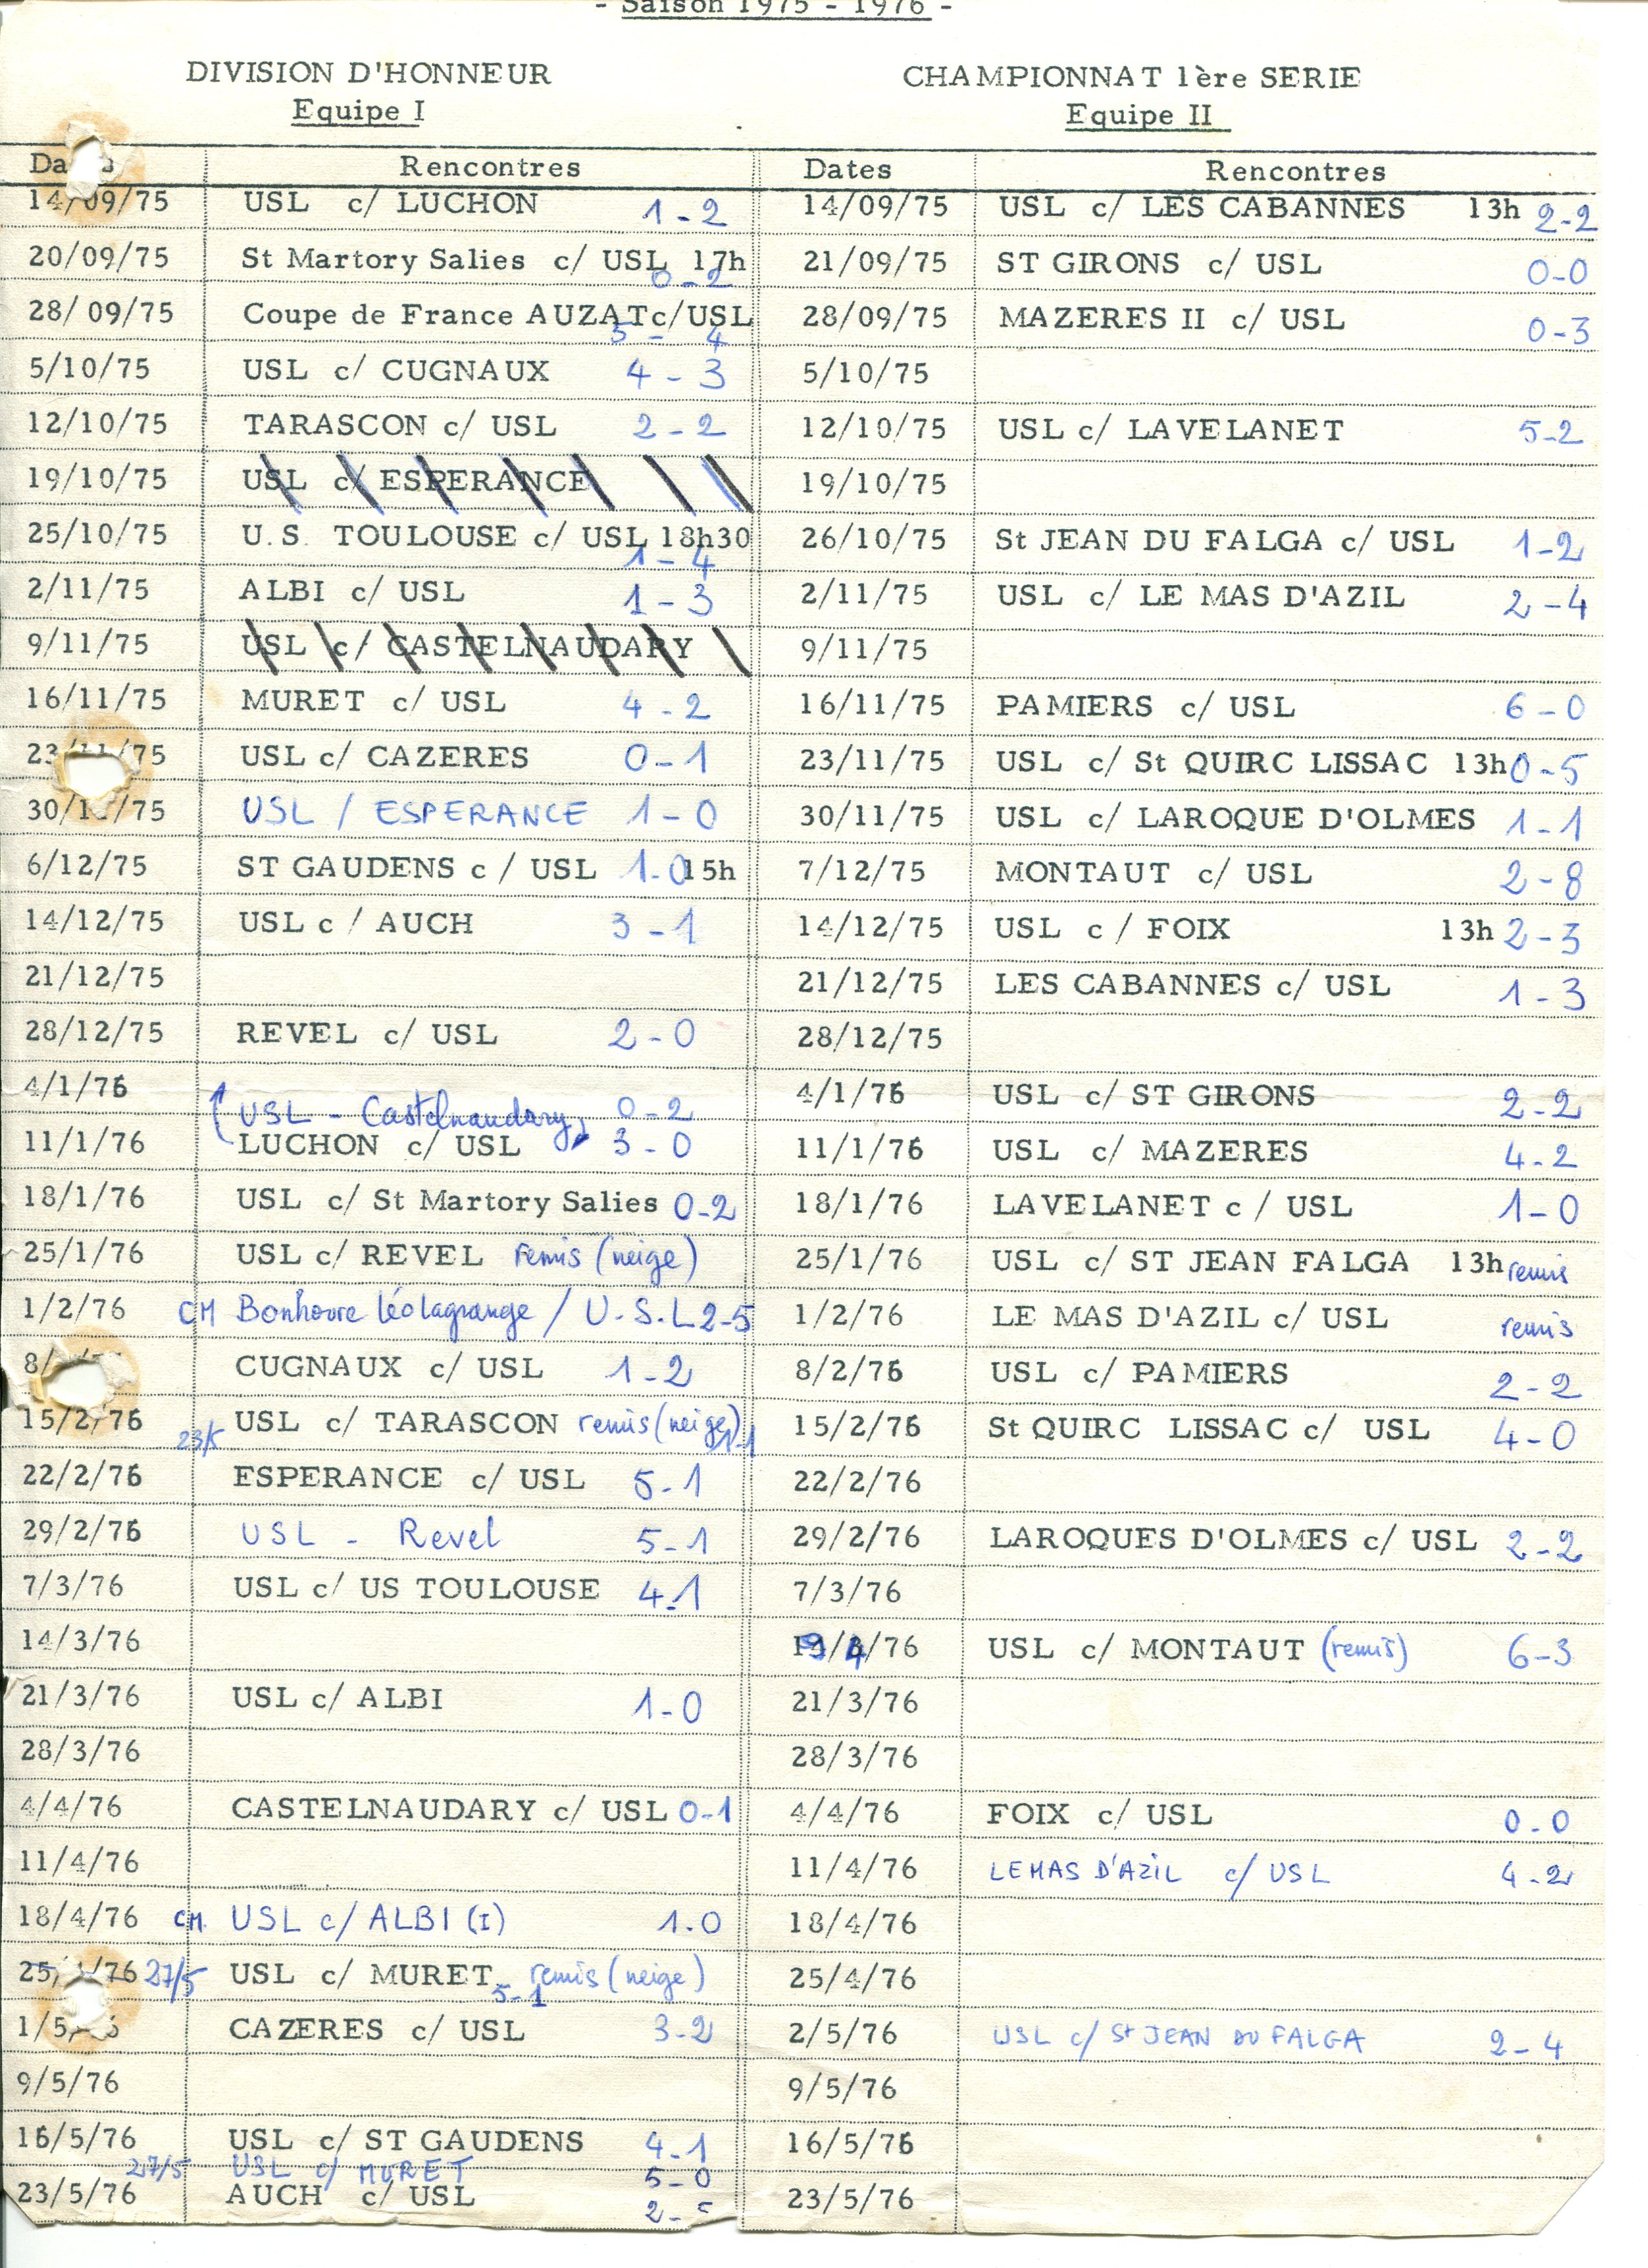 - Saison 1975 - 1976 -
DIVISION D'HONNEUR CHAMPIONNAT 1ère SERIE
Equipe I Equipe II
Rencontres Dates Rencontres
14/09/75 USL c/ LUCHON 1-2 14/09/75 USL c/ LES CABANNES 13h 2-2
20/09/75 St Martory Salies c/ USL 17h 0-2 21/09/75 ST GIRONS c/ USL 0-0
28/09/75 Coupe de France AUZAT c/USL 5-4 28/09/75 MAZERES II c/ USL 0-3
5/10/75 USL c/ CUGNAUX 4-3 5/10/75
12/10/75 TARASCON c/ USL 2-2 12/10/75 USL c/ LAVELANET 5-2
19/10/75 USL c/ ESPERANCE 19/10/75
25/10/75 U.S. TOULOUSE c/ USL 18h30 1-4 26/10/75 St JEAN DU FALGA c/ USL 1-2
2/11/75 ALBI c/ USL 1-3 2/11/75 USL c/ LE MAS D'AZIL 2-4
9/11/75 USL c/ CASTELNAUDARY 9/11/75
16/11/75 MURET c/ USL 4-2 16/11/75 PAMIERS c/ USL 6-0
23/11/75 USL c/ CAZERES 0-1 23/11/75 USL c/ St QUIRC LISSAC 13h 0-5
30/11/75 USL / ESPERANCE 1-0 30/11/75 USL c/ LAROQUE D'OLMES 1-1
6/12/75 ST GAUDENS c/ USL 1-0 15h 7/12/75 MONTAUT c/ USL 2-8
14/12/75 USL c/ AUCH 3-1 14/12/75 USL c/ FOIX 13h 2-3
21/12/75 21/12/75 LES CABANNES c/ USL 1-3
28/12/75 REVEL c/ USL 2-0 28/12/75
4/1/76 USL - Castelnaudary 0-2 4/1/76 USL c/ ST GIRONS 2-2
11/1/76 LUCHON c/ USL 3-0 11/1/76 USL c/ MAZERES 4-2
18/1/76 USL c/ St Martory Salies 0-2 18/1/76 LAVELANET c/ USL 1-0
25/1/76 USL c/ REVEL remis (neige) 25/1/76 USL c/ ST JEAN FALGA 13h remis
1/2/76 CM Bonhoure Léolagrange / U.S.L 2-5 1/2/76 LE MAS D'AZIL c/ USL remis
CUGNAUX c/ USL 1-2 8/2/76 USL c/ PAMIERS 2-2
15/2/76 23/5 USL c/ TARASCON remis (neige) 1-1 15/2/76 St QUIRC LISSAC c/ USL 4-0
22/2/76 ESPERANCE c/ USL 5-1 22/2/76
29/2/76 USL - Revel 5-1 29/2/76 LAROQUES D'OLMES c/ USL 2-2
7/3/76 USL c/ US TOULOUSE 4-1 7/3/76
14/3/76 /76 USL c/ MONTAUT (remis) 6-3
21/3/76 USL c/ ALBI 1-0 21/3/76
28/3/76 28/3/76
4/4/76 CASTELNAUDARY c/ USL 0-1 4/4/76 FOIX c/ USL 0-0
11/4/76 11/4/76 LE MAS D'AZIL c/ USL 4-2
18/4/76 CM USL c/ ALBI (I) 1.0 18/4/76
27/5 USL c/ MURET remis (neige) 5-1 25/4/76
CAZERES c/ USL 3-2 2/5/76 USL c/ St JEAN DU FALGA 2-4
9/5/76 9/5/76
16/5/76 USL c/ ST GAUDENS 4-1 16/5/76
27/5 USL c/ MURET 5-0
23/5/76 AUCH c/ USL 2- 23/5/76